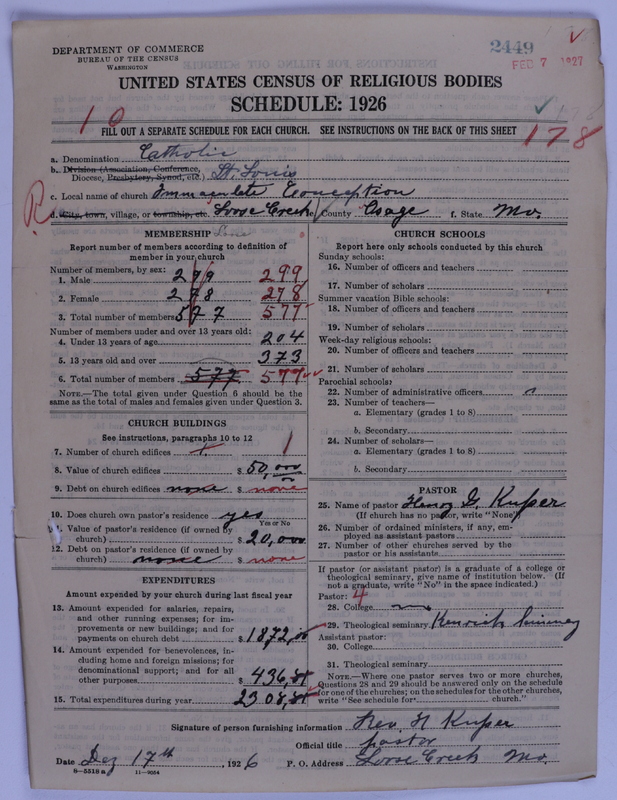 DEPARTMENT OF COMMERCE
BUREAU OF THE CENSUS
WASHINGTON
2449
FEB 7 1927
UNITED STATES CENSUS OF RELIGIOUS BODIES
SCHEDULE: 1926
10
178
FILL OUT A SEPARATE SCHEDULE FOR EACH CHURCH. SEE INSTRUCTIONS ON THE BACK OF THIS SHEET
178
a. Denomination Catholic
b. Division (Association, Conference,
Diocese, Presbytery, Synod, etc.) St. Louis
c. Local name of church Immaculate Conception
R
d. City, town, village, or township, etc. Loose Creek County Osage f. State Mo.
MEMBERSHIP
Report number of members according to definition of
member in your church
Number of members, by sex:
1. Male 279 299
2. Female 278 278
3. Total number of members 577 577
Number of members under and over 13 years old:
4. Under 13 years of age 204
5. 13 years old and over 373
6. Total number of members 577 577
NOTE.—The total given under Question 6 should be the
same as the total of males and females given under Question 3.
CHURCH BUILDINGS
See instructions, paragraphs 10 to 12
7. Number of church edifices 1. 1
8. Value of church edifices $ 50,000
9. Debt on church edifices none $ none
10. Does church own pastor's residence yes
Yes or No
11. Value of pastor's residence (if owned by
church) $ 20,000
12. Debt on pastor's residence (if owned by
church) none $ none
EXPENDITURES
Amount expended by your church during last fiscal year
13. Amount expended for salaries, repairs,
and other running expenses; for im-
provements or new buildings; and for
payments on church debt $ 1872,
14. Amount expended for benevolences, in-
cluding home and foreign missions; for
denominational support; and for all
other purposes $ 436,
15. Total expenditures during year 2308,
CHURCH SCHOOLS
Report here only schools conducted by this church
Sunday schools:
16. Number of officers and teachers
17. Number of scholars
Summer vacation Bible schools:
18. Number of officers and teachers
19. Number of scholars
Week-day religious schools:
20. Number of officers and teachers
21. Number of scholars
Parochial schools:
22. Number of administrative officers
23. Number of teachers—
a. Elementary (grades 1 to 8)
b. Secondary
24. Number of scholars—
a. Elementary (grades 1 to 8)
b. Secondary
PASTOR
25. Name of pastor Henry G. Kuper
(If church has no pastor, write "None")
26. Number of ordained ministers, if any, em-
ployed as assistant pastors
27. Number of other churches served by the
pastor or his assistants
If pastor (or assistant pastor) is a graduate of a college or
theological seminary, give name of institution below. (If
not a graduate, write "No" in the space indicated.)
Pastor: 4
28. College no
29. Theological seminary Kenrick Seminary
Assistant pastor:
30. College
31. Theological seminary
NOTE.—Where one pastor serves two or more churches,
Questions 28 and 29 should be answered only on the schedule
for one of the churches; on the schedules for the other churches,
write "See schedule for church."
Signature of person furnishing information Rev. H Kuper
Official title pastor
Date Dez 17th, 1926 P. O. Address Loose Creek Mo.
8—5518 a 11—9054